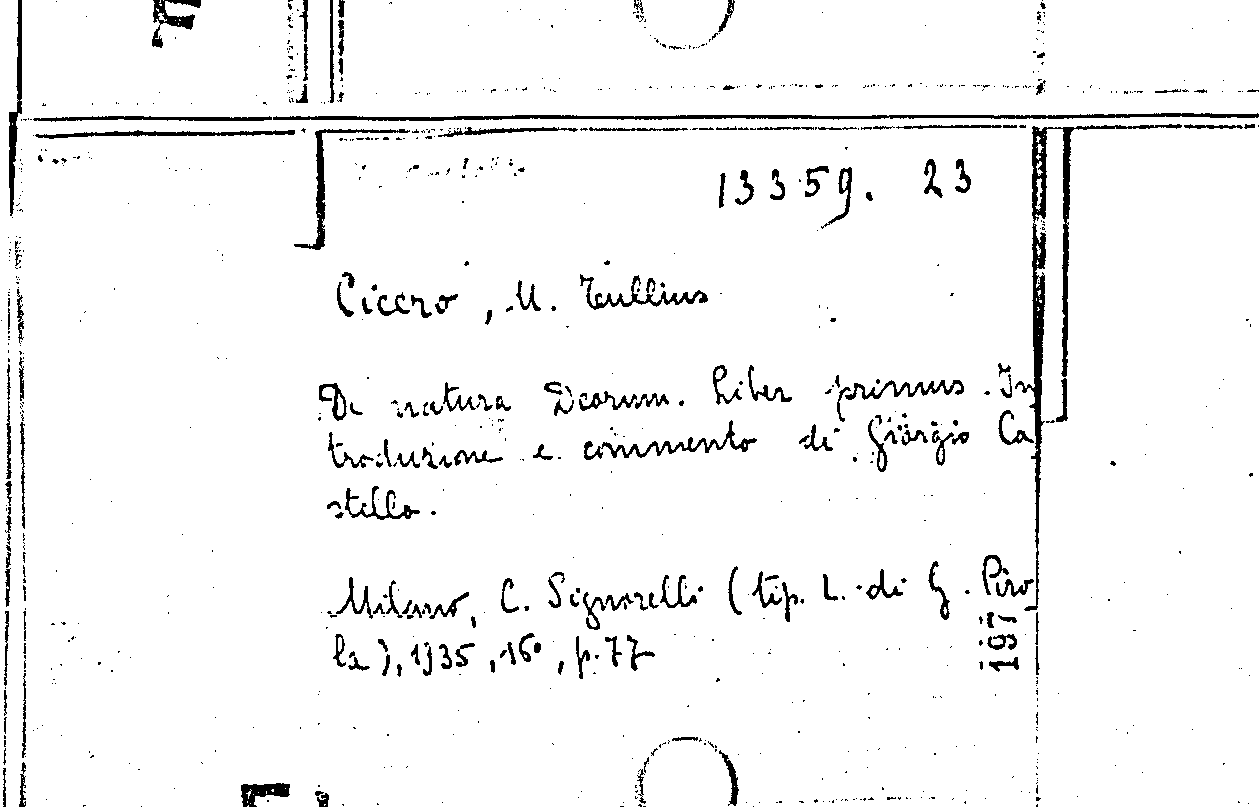 13359. 23
Cicero, M. Tullius
De natura Deorum. Liber primus. In
troduzione e commento di Giorgio Ca
stello.
Milano, C. Signorelli (tip. L. di G. Piro
la), 1935, 16°, p. 77
197